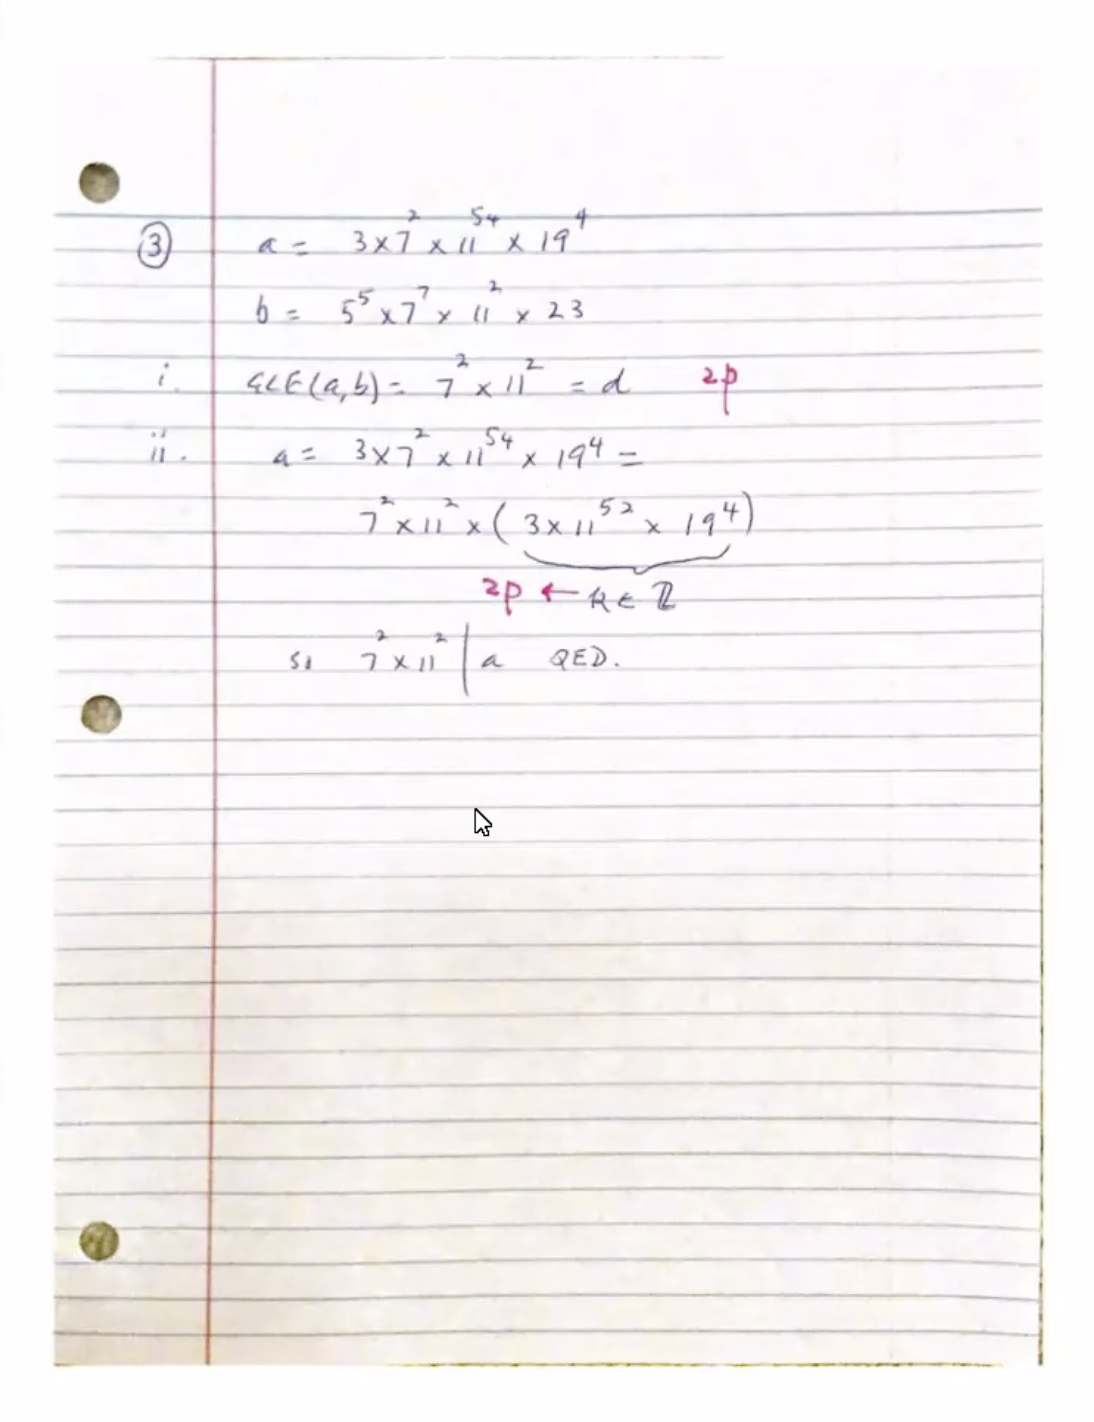 ③ a = 3 × 7² × 11⁵⁴ × 19⁴
b = 5⁵ × 7⁷ × 11² × 23
i. GCF(a,b) = 7² × 11² = d 2p
ii. a = 3 × 7² × 11⁵⁴ × 19⁴ =
7² × 11² × (3 × 11⁵² × 19⁴)
2p ← k ∈ ℤ
so 7² × 11² | a QED.